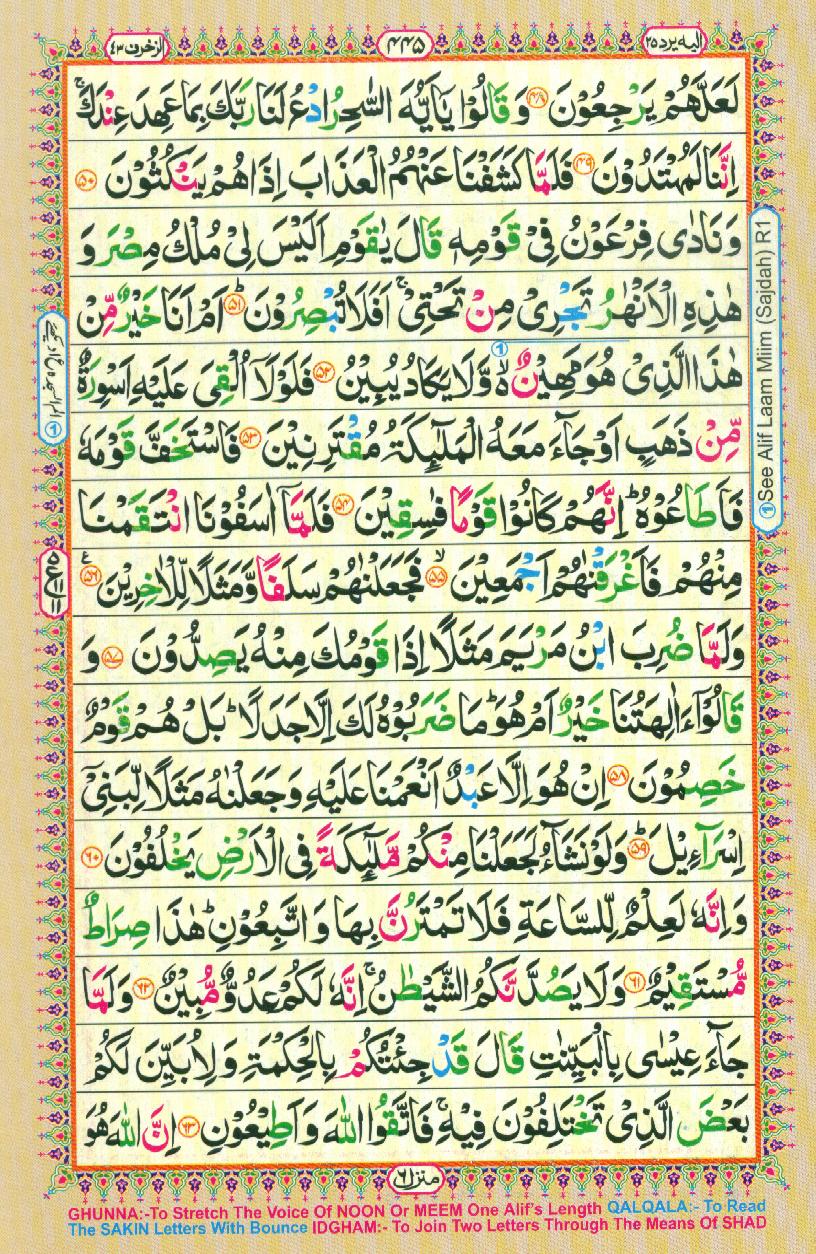 الزخرف ۴۳
۴۴۵
الیه یرد ۲۵
لَعَلَّهُمْ يَرْجِعُوْنَ ۴۸ وَقَالُوْا يٰۤاَيُّهَ السّٰحِرُ ادْعُ لَنَا رَبَّكَ بِمَا عَهِدَ عِنْدَكَۚ
اِنَّنَا لَمُهْتَدُوْنَ ۴۹ فَلَمَّا كَشَفْنَا عَنْهُمُ الْعَذَابَ اِذَا هُمْ يَنْكُثُوْنَ ۵۰
وَنَادٰى فِرْعَوْنُ فِيْ قَوْمِهٖ قَالَ يٰقَوْمِ اَلَيْسَ لِيْ مُلْكُ مِصْرَ وَ
هٰذِهِ الْاَنْهٰرُ تَجْرِيْ مِنْ تَحْتِيْۚ اَفَلَا تُبْصِرُوْنَؕ ۵۱ اَمْ اَنَا خَيْرٌ مِّنْ
هٰذَا الَّذِيْ هُوَ مَهِيْنٌ ۙ۬ وَّلَا يَكَادُ يُبِيْنُ ۵۲ فَلَوْلَاۤ اُلْقِيَ عَلَيْهِ اَسْوِرَةٌ
مِّنْ ذَهَبٍ اَوْ جَآءَ مَعَهُ الْمَلٰٓئِكَةُ مُقْتَرِنِيْنَ ۵۳ فَاسْتَخَفَّ قَوْمَهٗ
فَاَطَاعُوْهُؕ اِنَّهُمْ كَانُوْا قَوْمًا فٰسِقِيْنَ ۵۴ فَلَمَّاۤ اٰسَفُوْنَا انْتَقَمْنَا
مِنْهُمْ فَاَغْرَقْنٰهُمْ اَجْمَعِيْنَۙ ۵۵ فَجَعَلْنٰهُمْ سَلَفًا وَّمَثَلًا لِّلْاٰخِرِيْنَ ۵۶ ع
وَلَمَّا ضُرِبَ ابْنُ مَرْيَمَ مَثَلًا اِذَا قَوْمُكَ مِنْهُ يَصِدُّوْنَ ۵۷ وَ
قَالُوْۤا ءَاٰلِهَتُنَا خَيْرٌ اَمْ هُوَؕ مَا ضَرَبُوْهُ لَكَ اِلَّا جَدَلًاؕ بَلْ هُمْ قَوْمٌ
خَصِمُوْنَ ۵۸ اِنْ هُوَ اِلَّا عَبْدٌ اَنْعَمْنَا عَلَيْهِ وَجَعَلْنٰهُ مَثَلًا لِّبَنِيْۤ
اِسْرَآءِيْلَؕ ۵۹ وَلَوْ نَشَآءُ لَجَعَلْنَا مِنْكُمْ مَّلٰٓئِكَةً فِي الْاَرْضِ يَخْلُفُوْنَ ۶۰
وَاِنَّهٗ لَعِلْمٌ لِّلسَّاعَةِ فَلَا تَمْتَرُنَّ بِهَا وَاتَّبِعُوْنِؕ هٰذَا صِرَاطٌ
مُّسْتَقِيْمٌ ۶۱ وَلَا يَصُدَّنَّكُمُ الشَّيْطٰنُۚ اِنَّهٗ لَكُمْ عَدُوٌّ مُّبِيْنٌ ۶۲ وَلَمَّا
جَآءَ عِيْسٰى بِالْبَيِّنٰتِ قَالَ قَدْ جِئْتُكُمْ بِالْحِكْمَةِ وَلِاُبَيِّنَ لَكُمْ
بَعْضَ الَّذِيْ تَخْتَلِفُوْنَ فِيْهِۚ فَاتَّقُوا اللّٰهَ وَاَطِيْعُوْنِ ۶۳ اِنَّ اللّٰهَ هُوَ
منزل ۶
① See Alif Laam Miim (Sajdah) R1
GHUNNA:-To Stretch The Voice Of NOON Or MEEM One Alif's Length QALQALA:- To Read
The SAKIN Letters With Bounce IDGHAM:- To Join Two Letters Through The Means Of SHAD